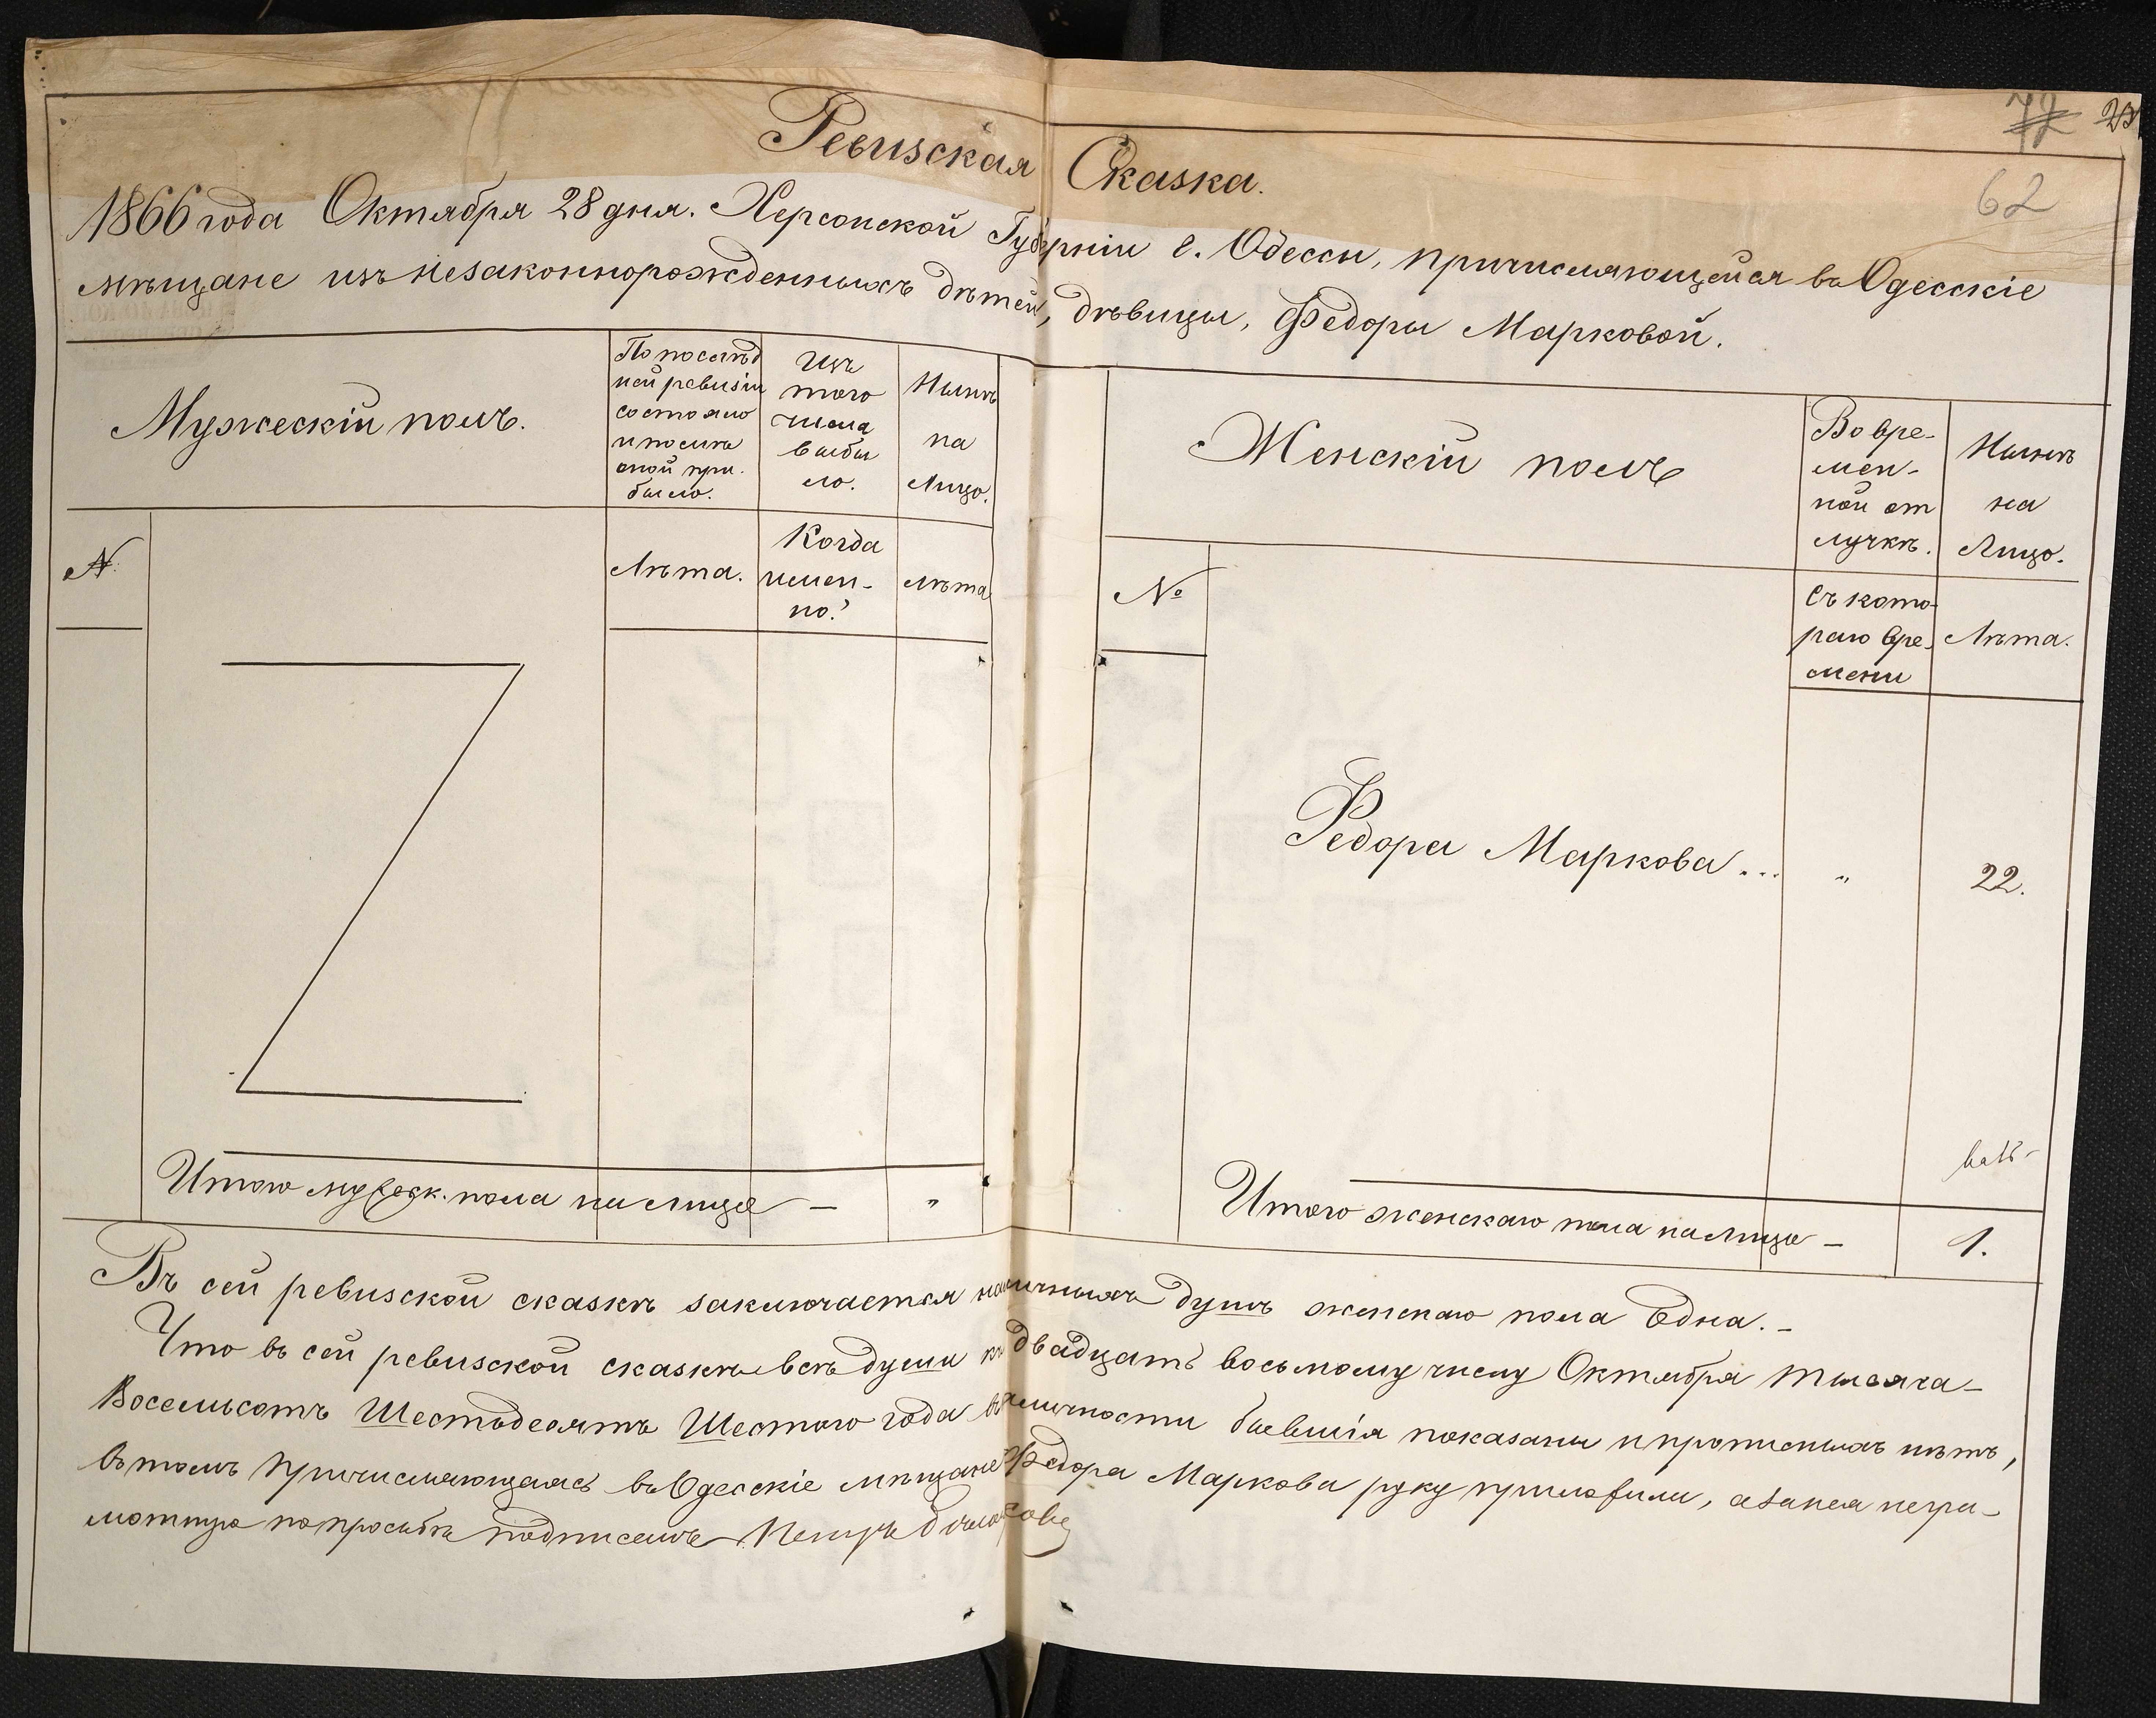 72 23
62
Ревизская Сказка.
1866 года Октября 28 дня. Херсонской Губерніи г. Одессы, причисляющейся въ Одесскіе
мѣщане изъ незаконнорожденныхъ дѣтей, дѣвицы, Федоры Марковой.
Мужескій полъ.
По послѣд
ней ревизіи
состояло
и послѣ
оной при-
было.
Изъ
того
числа
выбы
ло.
Нынѣ
на
Лицо.
№
Лѣта.
Когда
имен-
но?
лѣта
Итого мужеск. пола на лицо — "
Женскій полъ
Во вре-
мен-
ной от
лучкѣ.
Нынѣ
на
Лицо.
№
съ кото-
раго вре-
мени
Лѣта.
Федора Маркова... " 22.
Итого женскаго пола на лицо — 1.
Въ сей ревизской сказкѣ заключается наличныхъ душъ женскаго пола Една. -
Что въ сей ревизской сказкѣ всѣ души къ двадцать восьмому числу Октября тысяча-
Восемьсотъ Шестьдесятъ Шестого года въ наличности бывшія показаны и прописныхъ нѣтъ,
въ томъ причисляющаяся въ Одесскіе мѣщане Федора Маркова руку приложила, а за нея негра-
мотную по просьбѣ подписалъ Петръ